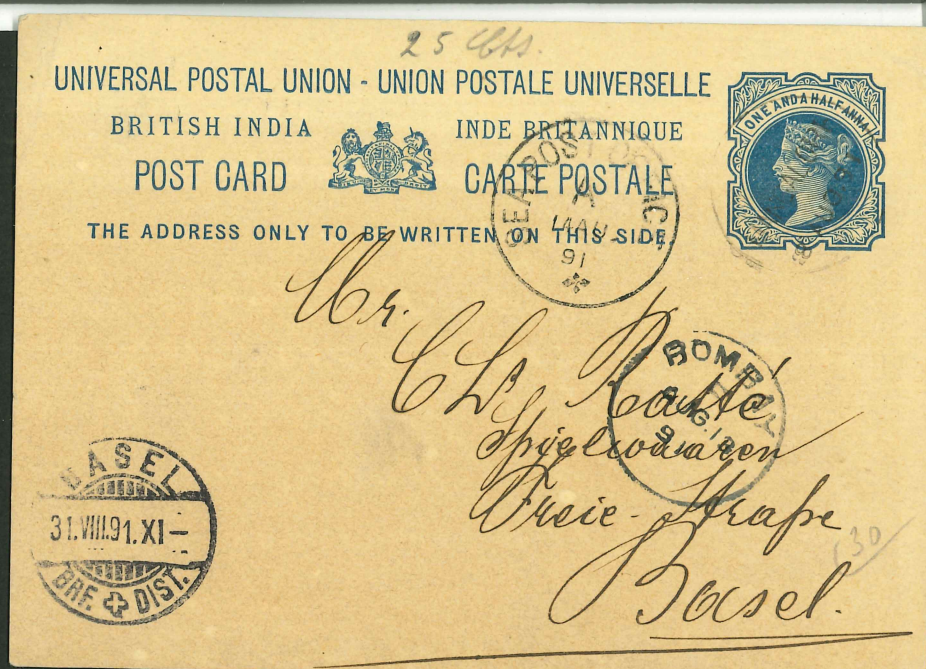 25 Cts.
UNIVERSAL POSTAL UNION - UNION POSTALE UNIVERSELLE
BRITISH INDIA INDE BRITANNIQUE
POST CARD CARTE POSTALE
THE ADDRESS ONLY TO BE WRITTEN ON THIS SIDE.
ONE AND A HALF ANNA
SEA POST OFFICE
A
14 AU
91
Mr.
BOMBAY
Spielwaaren
Freie-Straße
Basel.
BASEL
31.VIII.91.XI-
BRF. DIST.
30